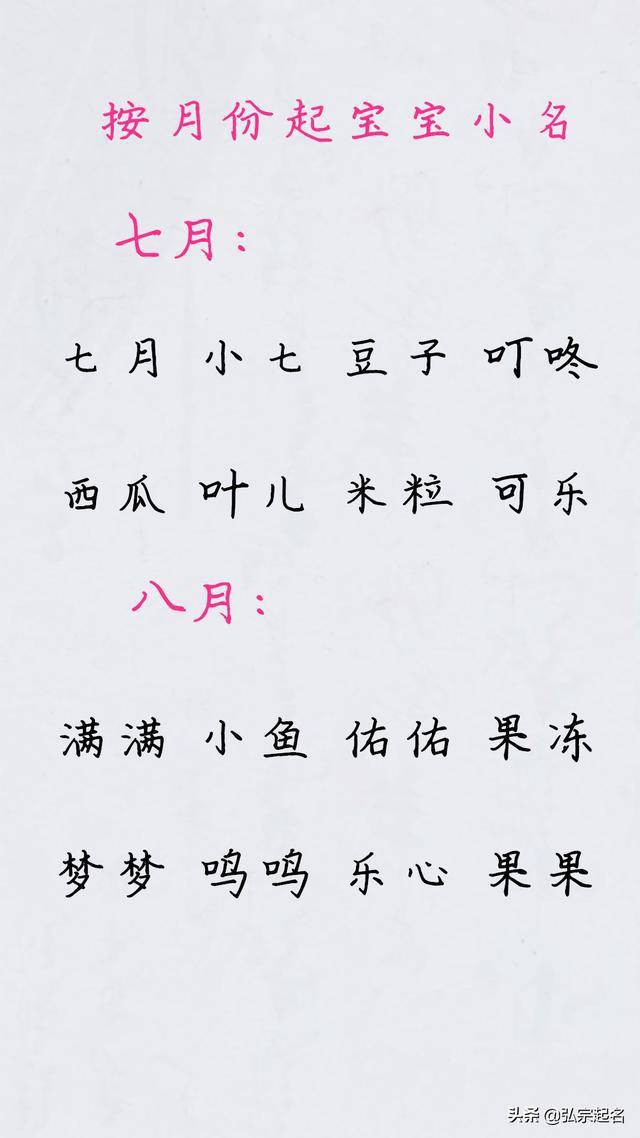 按月份起宝宝小名
七月：
七月 小七 豆子 叮咚
西瓜 叶儿 米粒 可乐
八月：
满满 小鱼 佑佑 果冻
梦梦 鸣鸣 乐心 果果
头条 @弘宗起名